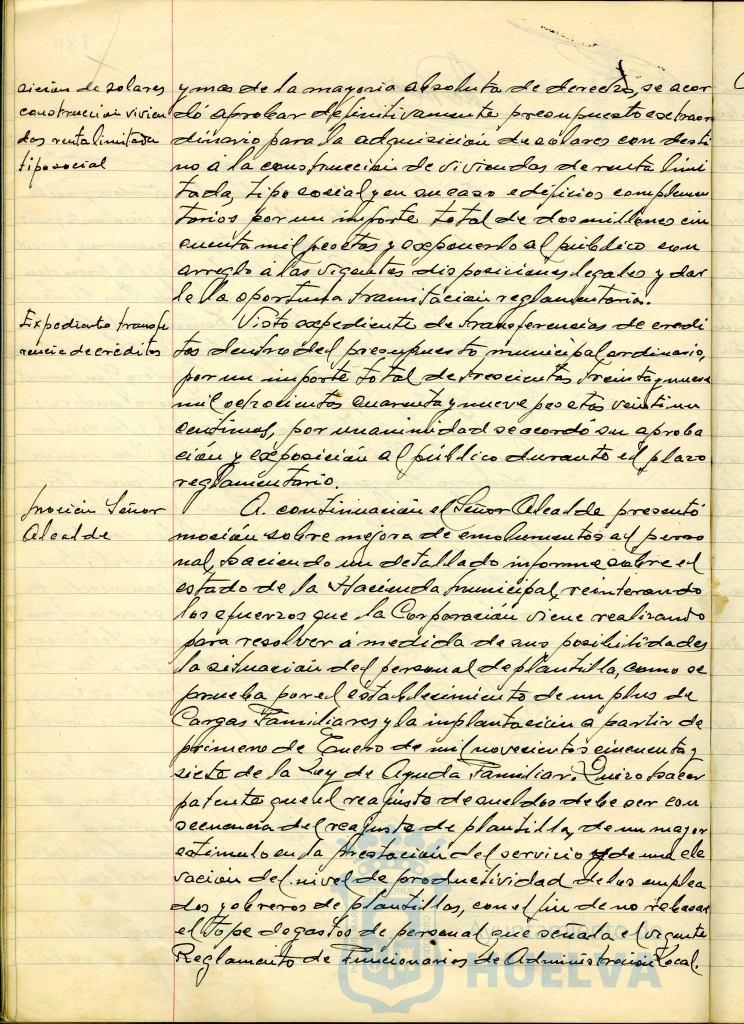 sición de solares
construcción vivien
das renta limitada
tipo social
y mas de la mayoría absoluta de derecho, se acor
dó aprobar definitivamente presupuesto extraor
dinario para la adquisición de solares con desti
no á la construcción de viviendas de renta limi
tada, tipo social y en su caso edificios complemen
tarios por un importe total de dos millones cin
cuenta mil pesetas y exponerlo al público con
arreglo á las vigentes disposiciones legales y dar
le la oportuna tramitación reglamentaria.
Expediente transfe
rencia de créditos
Visto expediente de transferencias de credi
tos dentro del presupuesto municipal ordinario,
por un importe total de trescientas treinta y nueve
mil ochocientas cuarenta y nueve pesetas veintiun
centimos, por unanimidad se acordó su aproba
ción y exposición al público durante el plazo
reglamentario.
Moción Señor
Alcalde
A continuación el Señor Alcalde presentó
moción sobre mejora de emolumentos al perso
nal, haciendo un detallado informe sobre el
estado de la Hacienda Municipal, reinterando
los esfuerzos que la Corporación viene realizando
para resolver á medida de sus posibilidades
la situación del personal de plantilla, como se
prueba por el establecimiento de un plus de
Cargas Familiares y la implantación a partir de
primero de Enero de mil novecientos cincuenta y
siete de la Ley de Ayuda Familiar. Quiso hacer
patente que el reajuste de sueldos debe ser con
secuencia del reajuste de plantilla, de un mayor
estimulo en la prestación del servicio y de una ele
vación del nivel de productividad de los emplea
dos y obreros de plantillas, con el fin de no rebasar
el tope de gastos de personal que señala el vigente
Reglamento de Funcionarios de Administración Local.
Ayuntamiento de
HUELVA